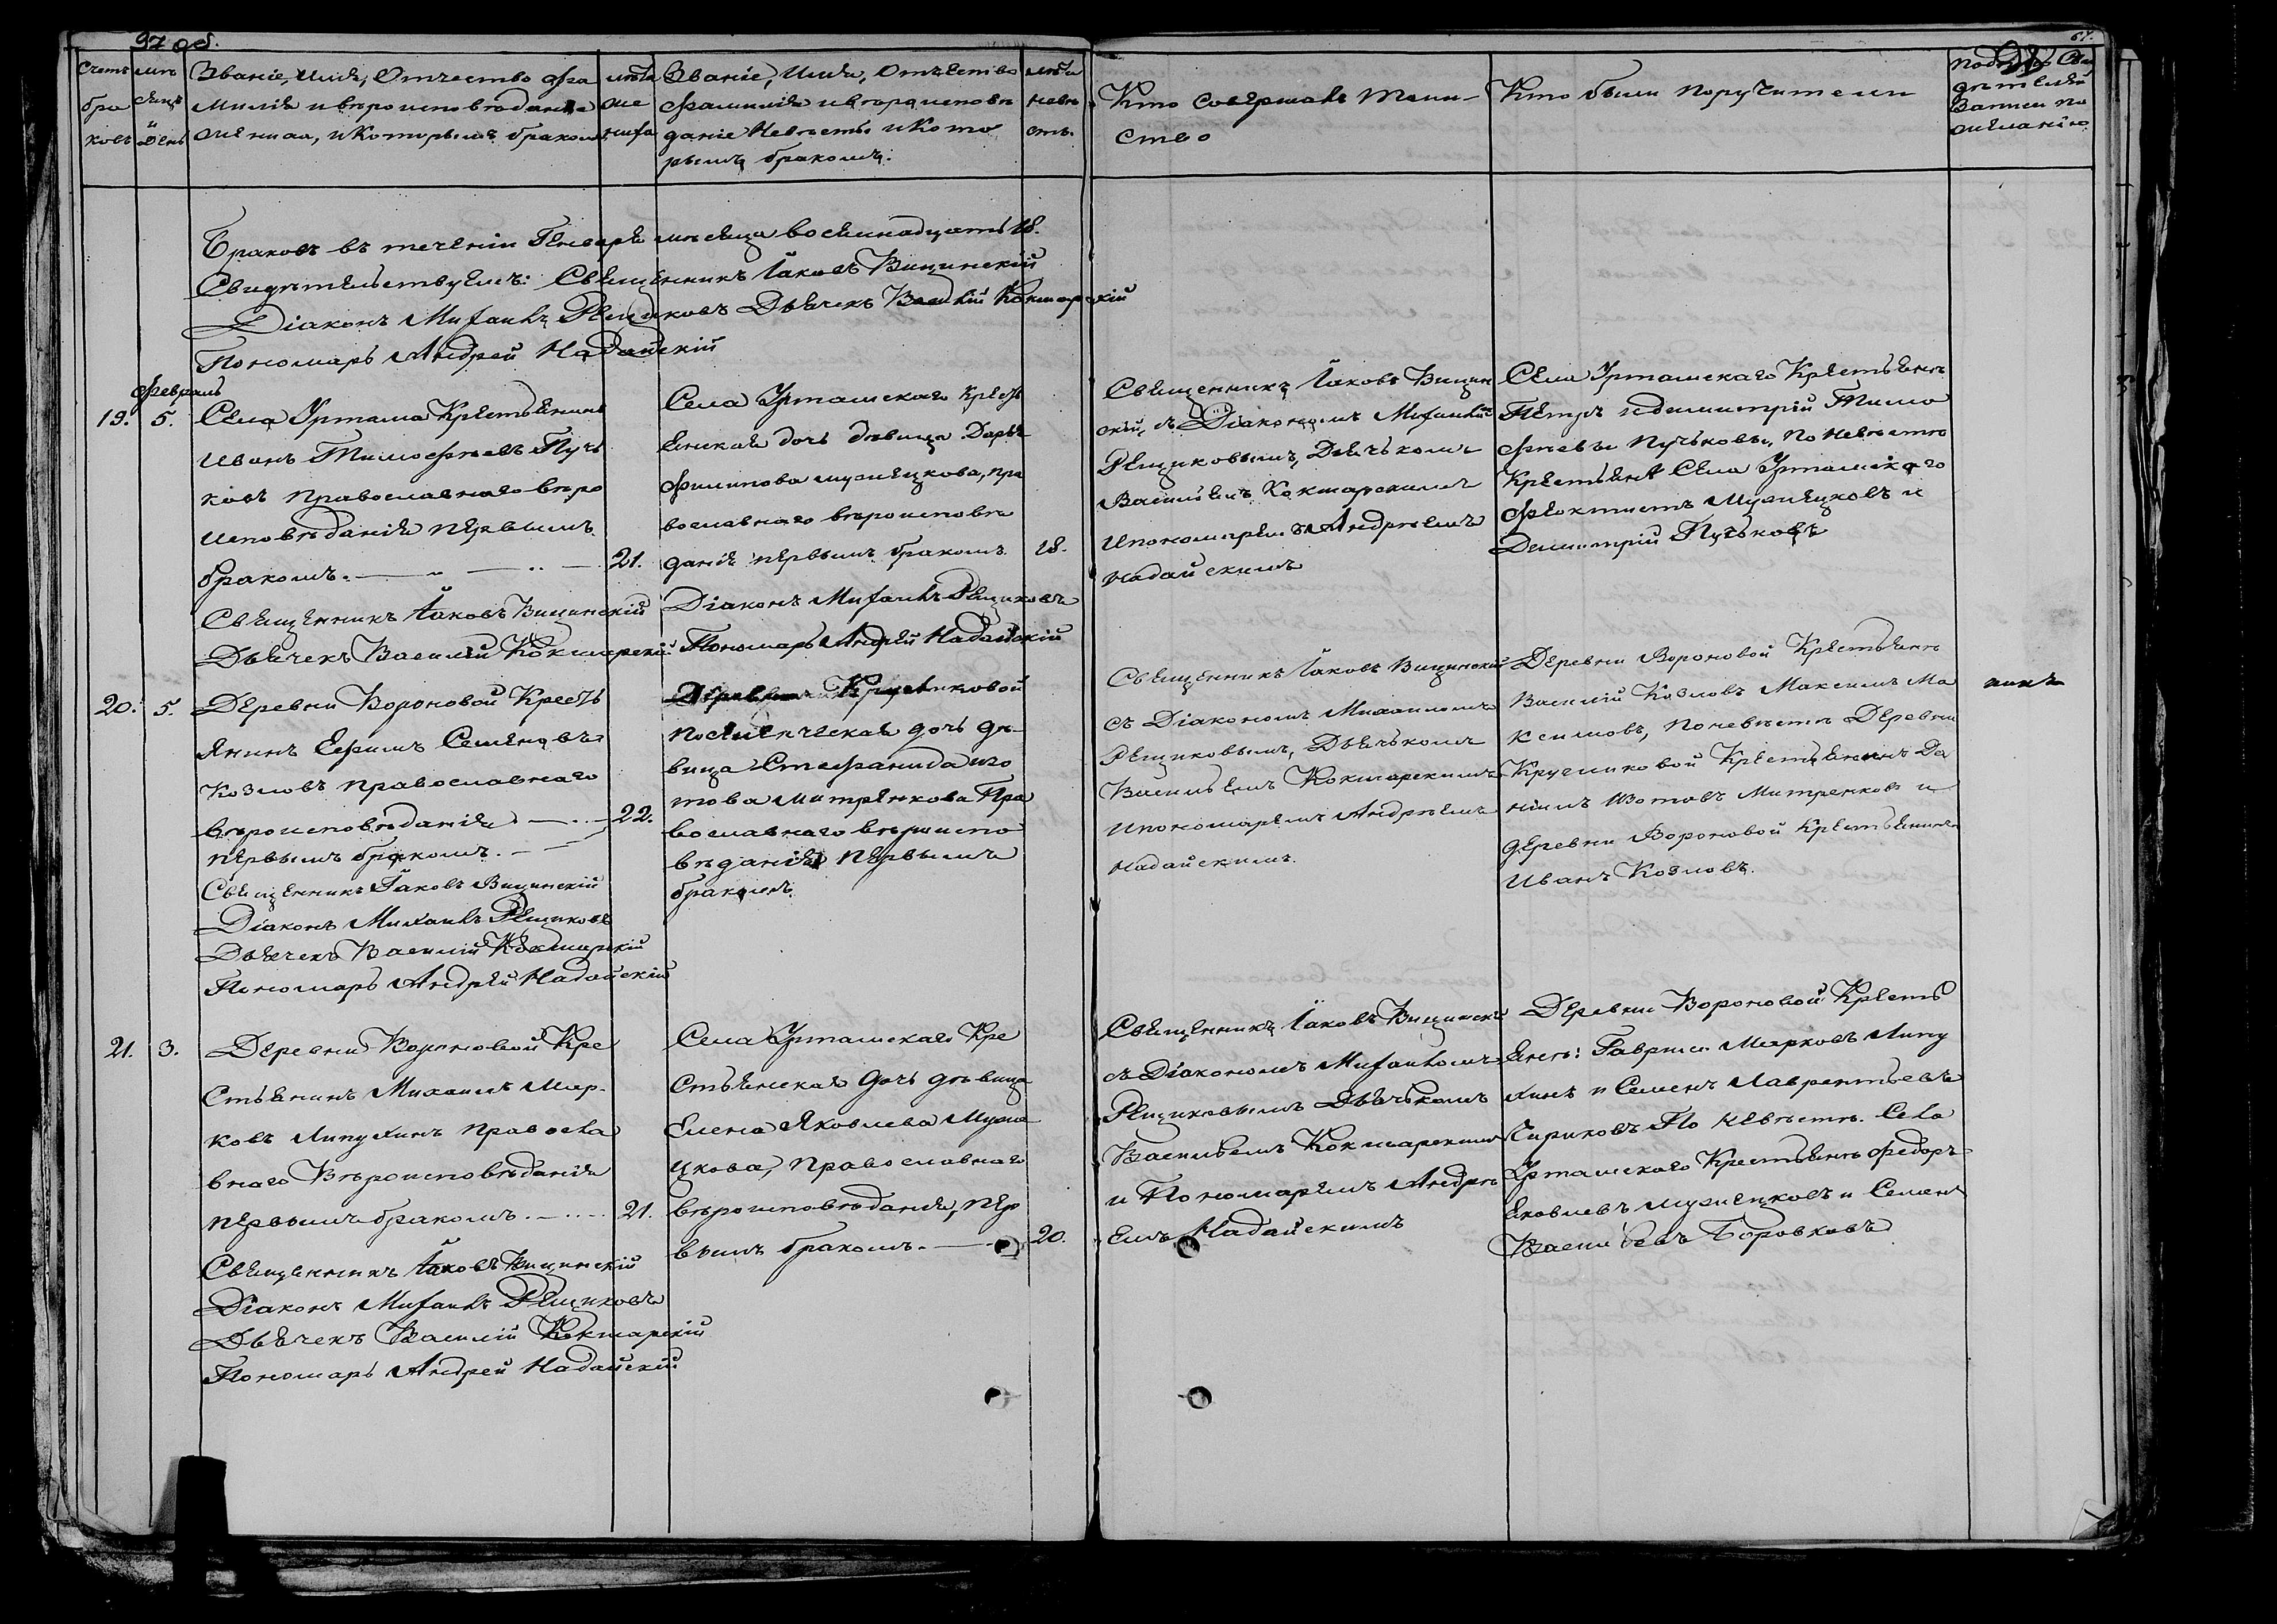 97 об.
67.
98
Счетъ браковъ
Мѣсяцъ и день
Званіе, Имя, Отчество Фа
милія и вѣроисповѣданіе
жениха, и которымъ бракомъ
лѣта
же
ниха
Званіе, Имя, Отчество
фамилія и вѣроисповѣ
даніе Невѣсты и Кото
рымъ бракомъ.
лѣта
невѣ
сты.
Кто Совершалъ Таин-
ство
Кто были поручители
Подпись Сви
дѣтелей
Записи по
желанію
Браковъ въ теченіи Генваря мѣсяца восемнадцать 18.
Свидѣтельствуемъ: Священникъ Іаковъ Вицинскій
Діаконъ Михаилъ Рещиковъ Дьячекъ Василій Кокшарскій
Пономарь Андрей Надайскій
Февраль
19. 5.
Села Уртама Крестьянинъ
Иванъ Тимофѣевъ Пучь
ковъ православнаго вѣро
исповѣданія первымъ
бракомъ.
21.
Священникъ Іаковъ Вицинскій
Дьячекъ Василій Кокшарскій
Села Уртамскаго Кресть
янская дочь дѣвица Дарья
Филипова мужецкова, пра
вославнаго вѣроисповѣ
данія первымъ бракомъ
18.
Діаконъ Михаилъ Рещиковъ
Пономарь Андрей Надайскій
Священникъ Іаковъ Вицин
скій, съ Діакономъ Михаиломъ
Рещиковымъ, Дьячькомъ
Васильемъ Кокшарскимъ
и пономаремъ Андрѣемъ
Надайскимъ
Села Уртамскаго Крестьяне
Петръ и Димитрій Тимо
фѣевы Пучьковы, По невѣстѣ
Крестьяне Села Уртамскаго
Феоктистъ Мужецковъ и
Димитрій Пучьковъ
20. 5.
Деревни Вороновой Кресть
янинъ Ефимъ Семеновъ
Козловъ православнаго
вѣроисповѣданія
22.
первымъ бракомъ.
Священникъ Іаковъ Вицинскій
Діаконъ Михаилъ Рещиковъ
Дьячекъ Василій Кокшарскій
Пономарь Андрей Надайскій
Деревни Кругликовой
дочь дѣ-
вица Стефанида Изо
това Митренкова Пра
вославнаго вѣроиспо
вѣданія первымъ
бракомъ.
Священникъ Іаковъ Вицинскій
съ Діакономъ Михаиломъ
Рещиковымъ, Дьячькомъ
Васильемъ Кокшарскимъ
и пономаремъ Андрѣемъ
Надайскимъ.
Деревни Вороновой Крестьяне
Василій Козловъ Максимъ Ма
ксимовъ, по невѣстѣ Деревни
Кругликовой Крестьянинъ Да
ніилъ Изотовъ Митренковъ и
деревни Вороновой Крестьянинъ
Иванъ Козловъ.
21. 3.
Деревни Вороновой Кре
стьянинъ Михаилъ Мар-
ковъ Липухинъ правосла
внаго Вѣроисповѣданія
первымъ бракомъ.
21.
Священникъ Іаковъ Вицинскій
Діаконъ Михаилъ Рещиковъ
Дьячекъ Василій Кокшарскій
Пономарь Андрей Надайскій
Села Уртамскаго Кре
стьянская дочь дѣвица
Елена Яковлева Муже
цкова, православнаго
вѣроисповѣданія, пер
вымъ бракомъ.
20.
Священникъ Іаковъ Вицинскій
съ Діакономъ Михаиломъ
Рещиковымъ Дьячькомъ
Васильемъ Кокшарскимъ
и Пономаремъ Андрѣ
емъ Надайскимъ
Деревни Вороновой Кресть
яне: Гаврило Марковъ Липу
хинъ и Семенъ Лаврентьевъ
Чириковъ По невѣстѣ. Села
Уртамскаго Крестьяне Федоръ
Яковлевъ Мужецковъ и Семенъ
Васильевъ Боровковъ